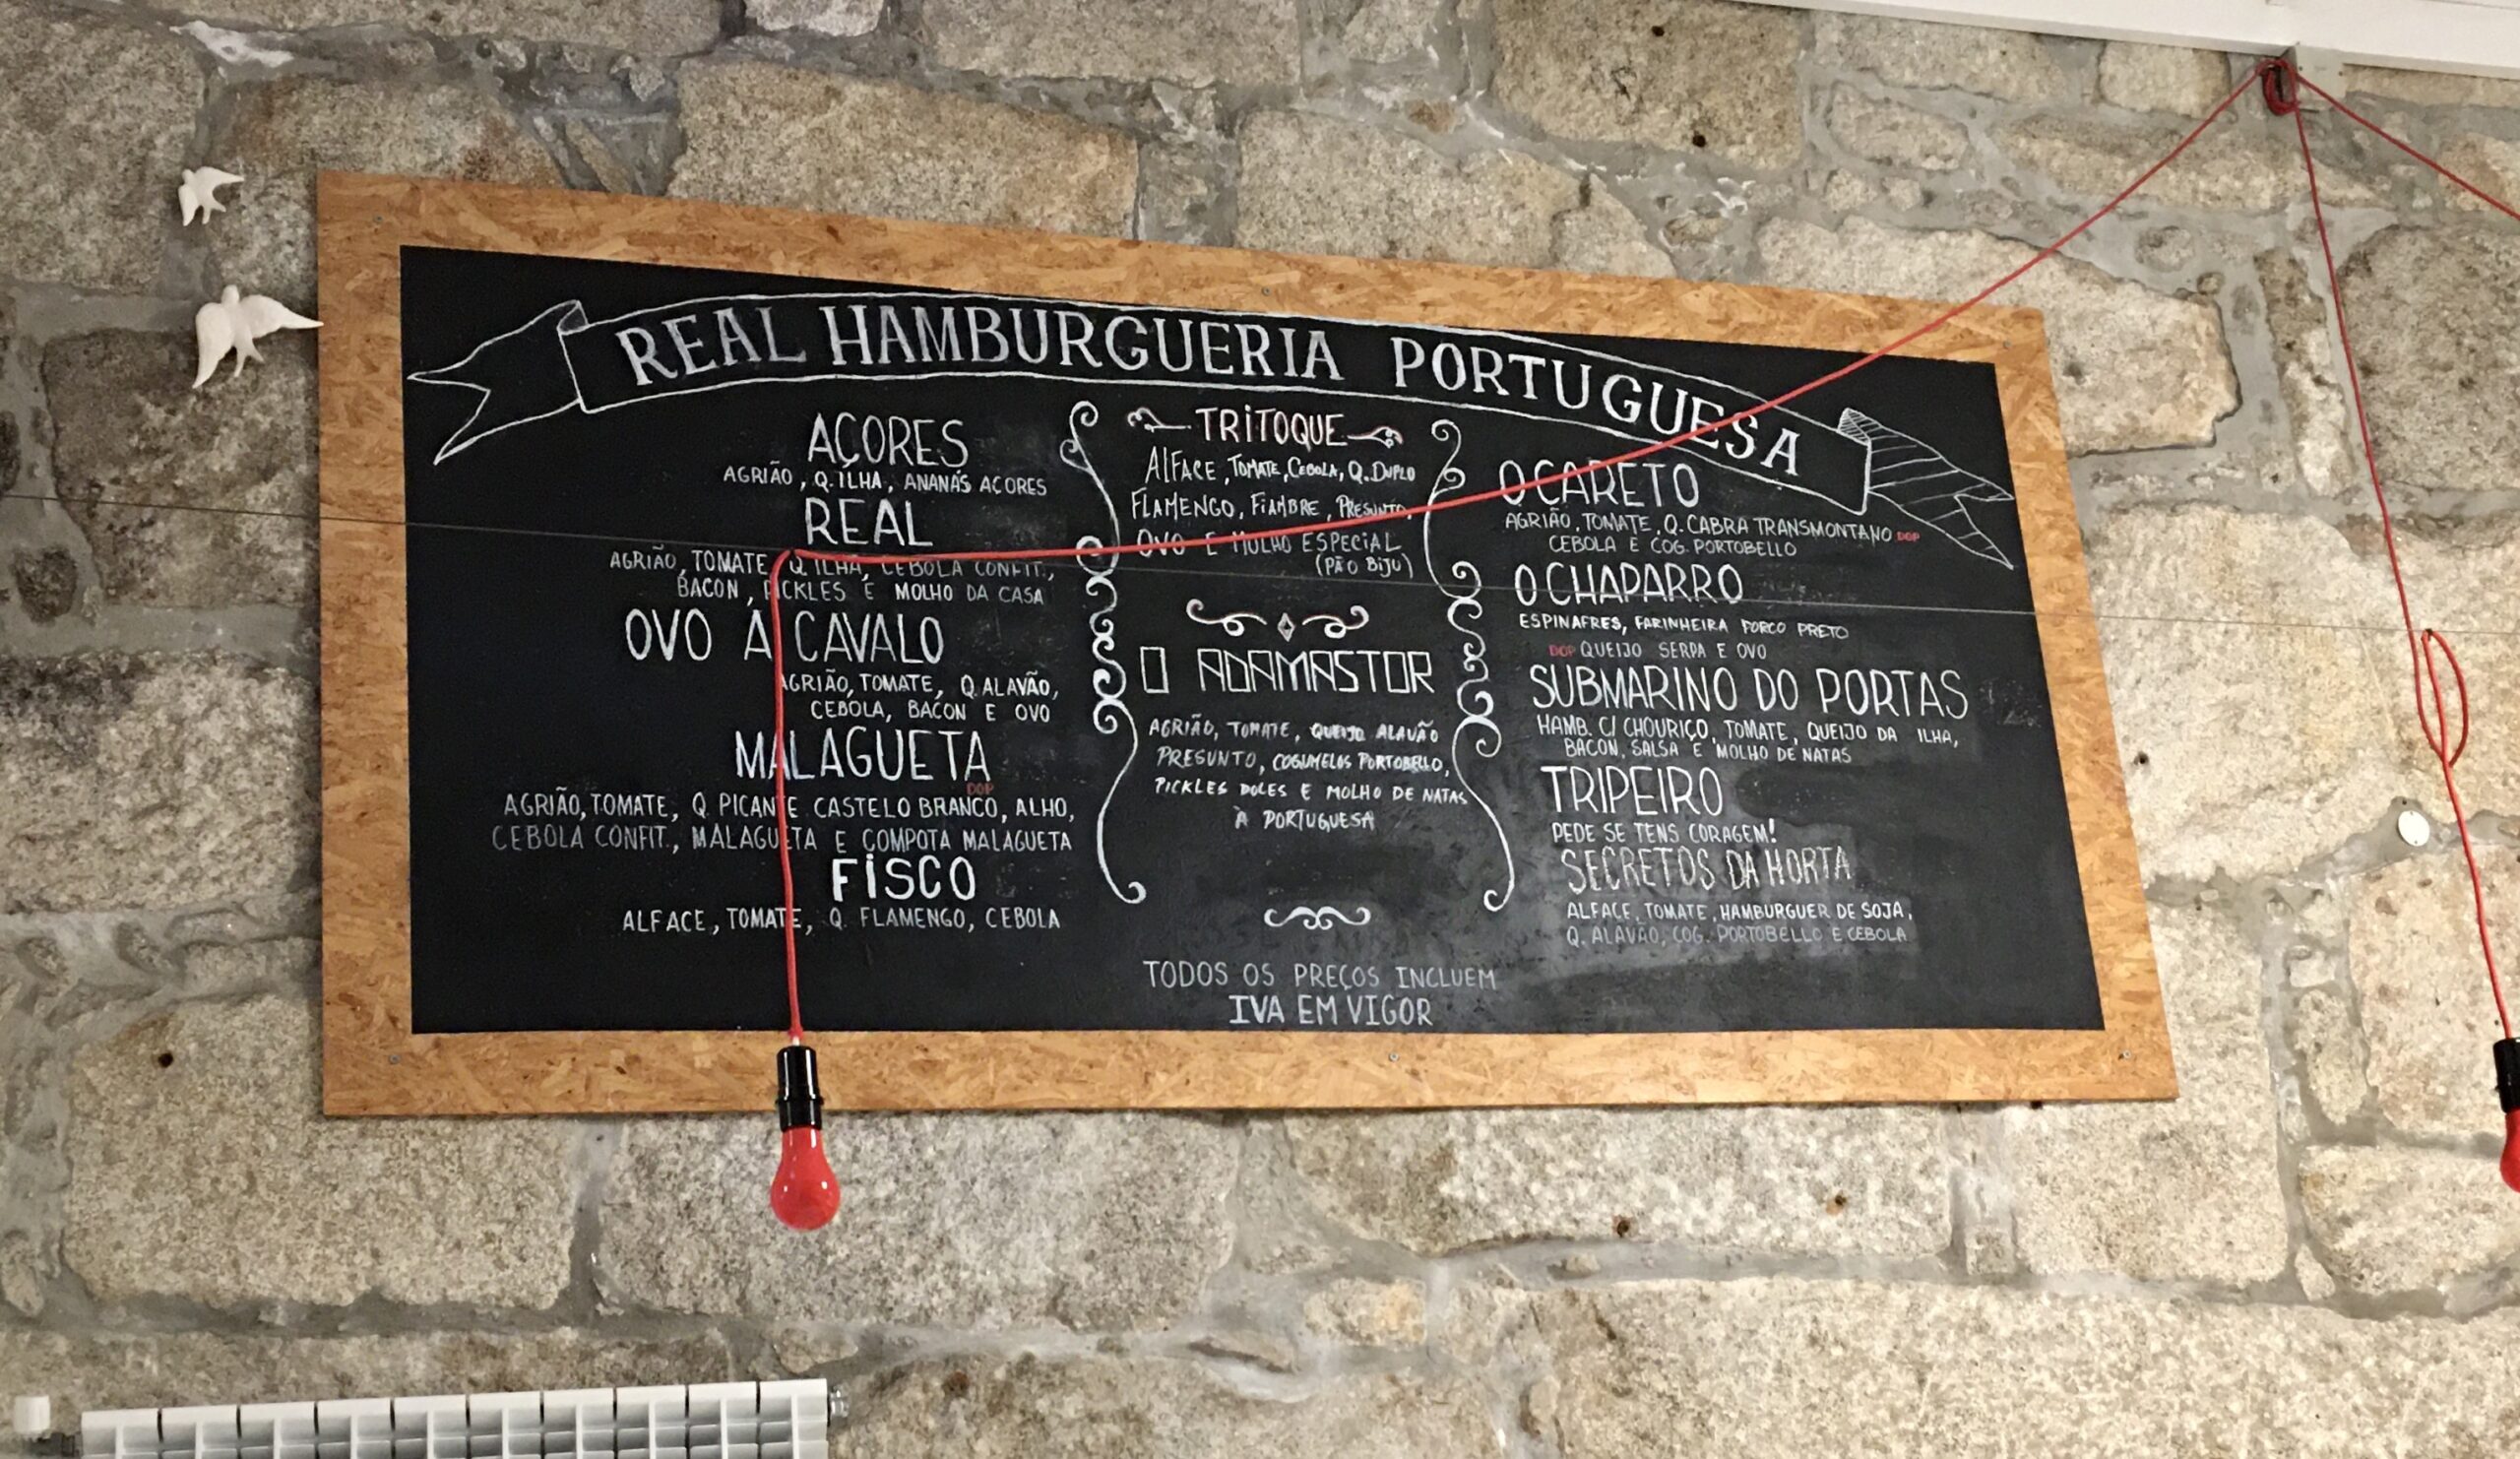 REAL HAMBURGUERIA PORTUGUESA
AÇORES
AGRIÃO, Q. ILHA, ANANÁS AÇORES
REAL
AGRIÃO, TOMATE, Q. ILHA, CEBOLA CONFIT.,
BACON, PICKLES E MOLHO DA CASA
OVO A CAVALO
AGRIÃO, TOMATE, Q. ALAVÃO,
CEBOLA, BACON E OVO
MALAGUETA
DOP
AGRIÃO, TOMATE, Q. PICANTE CASTELO BRANCO, ALHO,
CEBOLA CONFIT., MALAGUETA E COMPOTA MALAGUETA
FISCO
ALFACE, TOMATE, Q. FLAMENGO, CEBOLA
TRITOQUE
ALFACE, TOMATE, CEBOLA, Q. DUPLO
FLAMENGO, FIAMBRE, PRESUNTO,
OVO E MOLHO ESPECIAL
(PÃO BIJU)
O ADAMASTOR
AGRIÃO, TOMATE, QUEIJO ALAVÃO
PRESUNTO, COGUMELOS PORTOBELLO,
PICKLES DOLES E MOLHO DE NATAS
À PORTUGUESA
TODOS OS PREÇOS INCLUEM
IVA EM VIGOR
O CARETO
AGRIÃO, TOMATE, Q. CABRA TRANSMONTANO DOP
CEBOLA E COG. PORTOBELLO
O CHAPARRO
ESPINAFRES, FARINHEIRA PORCO PRETO
DOP QUEIJO SERPA E OVO
SUBMARINO DO PORTAS
HAMB. C/ CHOURIÇO, TOMATE, QUEIJO DA ILHA,
BACON, SALSA E MOLHO DE NATAS
TRIPEIRO
PEDE SE TENS CORAGEM!
SECRETOS DA HORTA
ALFACE, TOMATE, HAMBURGUER DE SOJA,
Q. ALAVÃO, COG. PORTOBELLO E CEBOLA